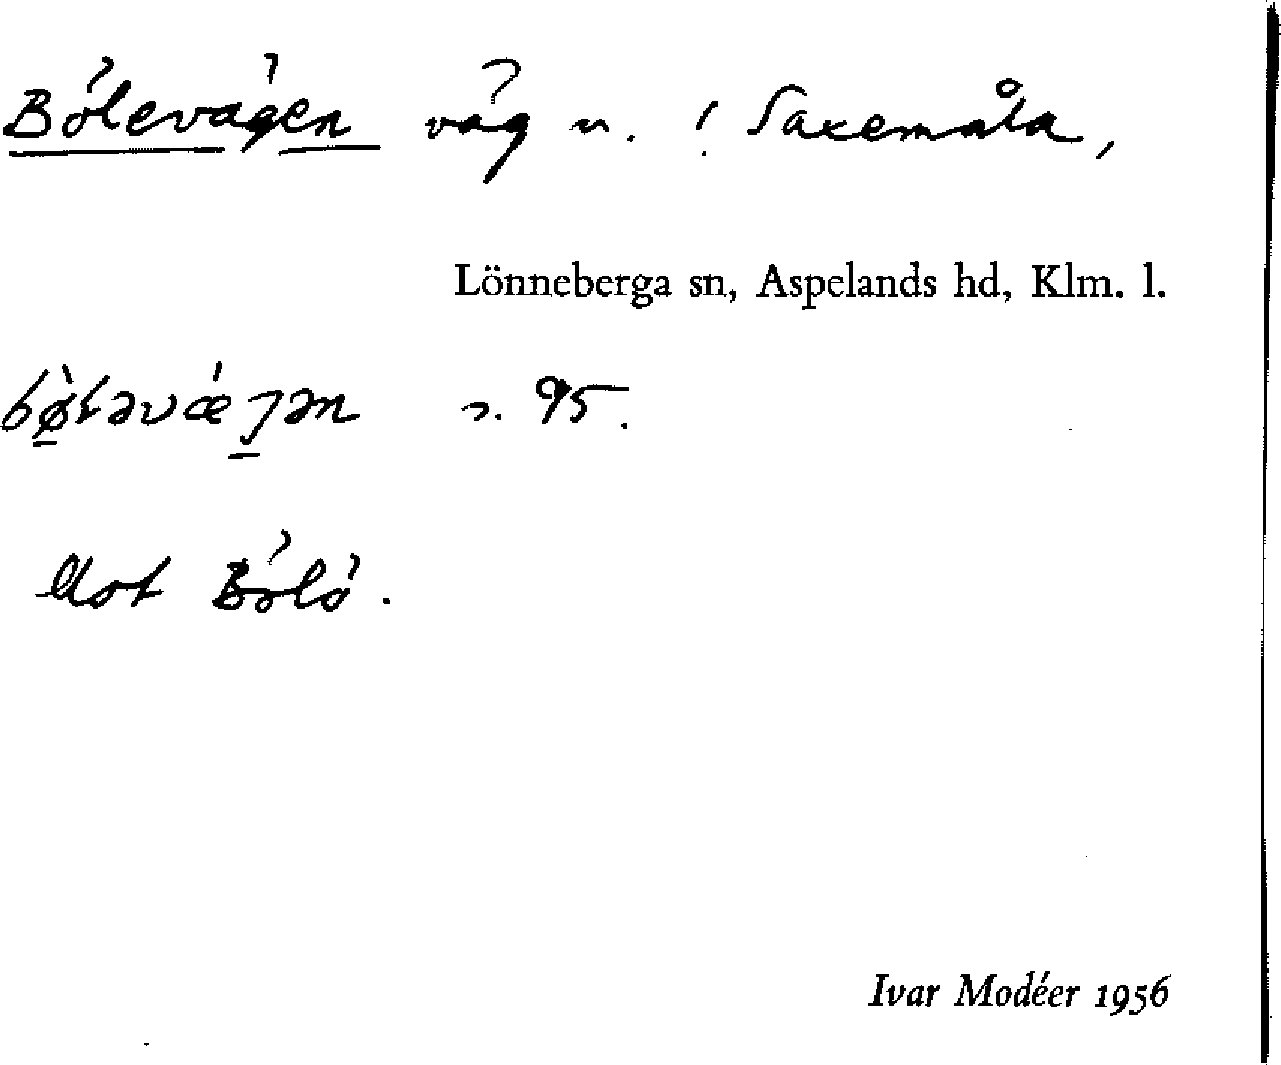 Bölevägen väg n. i Saxemåla,
Lönneberga sn, Aspelands hd, Klm. l.
bø̀ləvǽgən n. 95.
Mot Bölö.
Ivar Modéer 1956